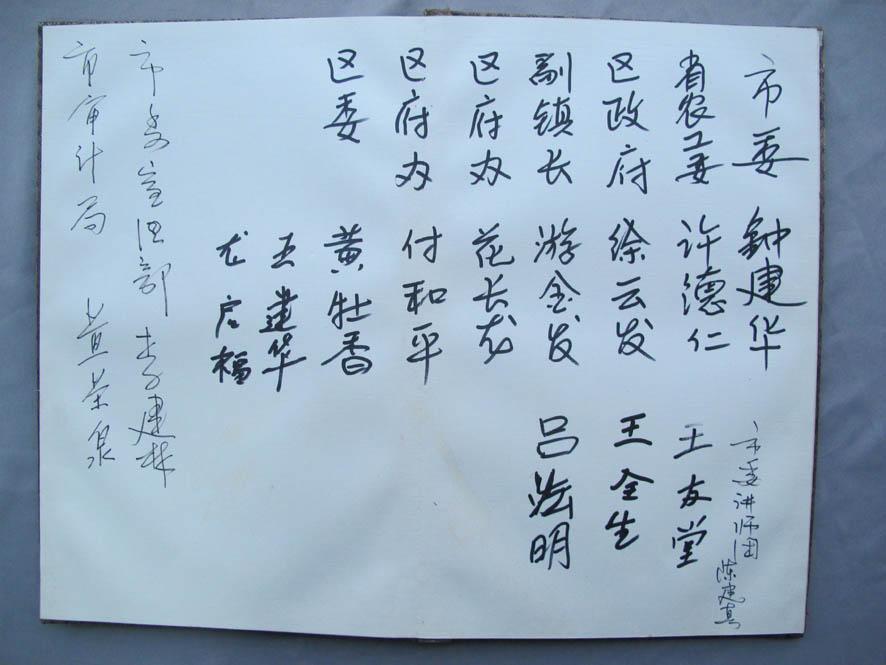 市委 钟建华
市委讲师团 陈建真
省农工委 许德仁 王友堂
区政府 徐云发 王全生
副镇长 游金发 吕法明
区府办 花长龙
区府办 付和平
区委 黄牡香
王建华
尤启福
市委宣传部 李建林
市审计局 董荣泉